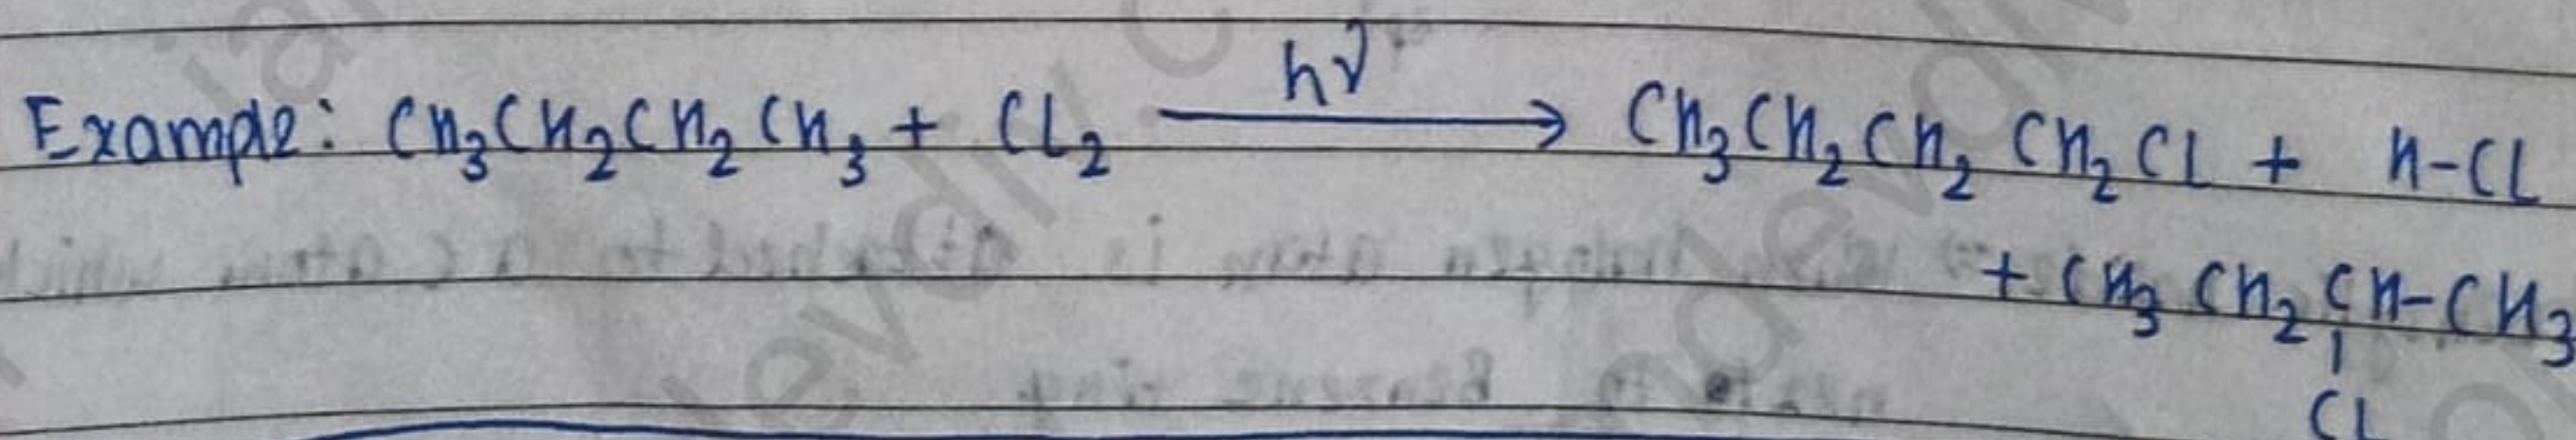 Example: CH₃CH₂CH₂CH₃ + Cl₂ hν → CH₃CH₂CH₂CH₂Cl + H-Cl
+ CH₃CH₂CH-CH₃
|
Cl